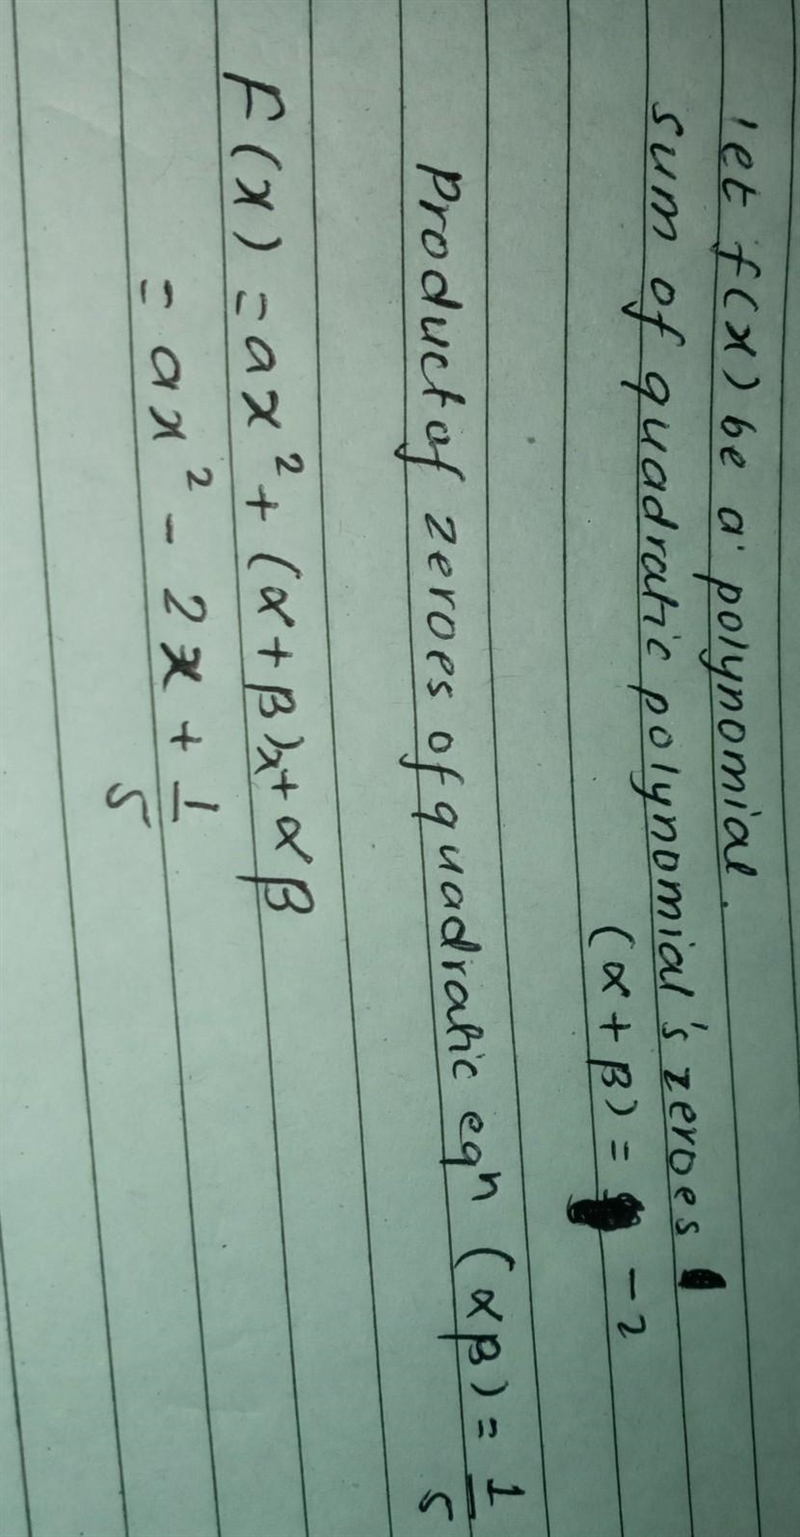 let f(x) be a polynomial.
sum of quadratic polynomial's zeroes
(α + β) = - 2
Product of zeroes of quadratic eqⁿ (αβ) = 1/5
F(x) = ax² + (α + β)x + αβ
= ax² - 2x + 1/5